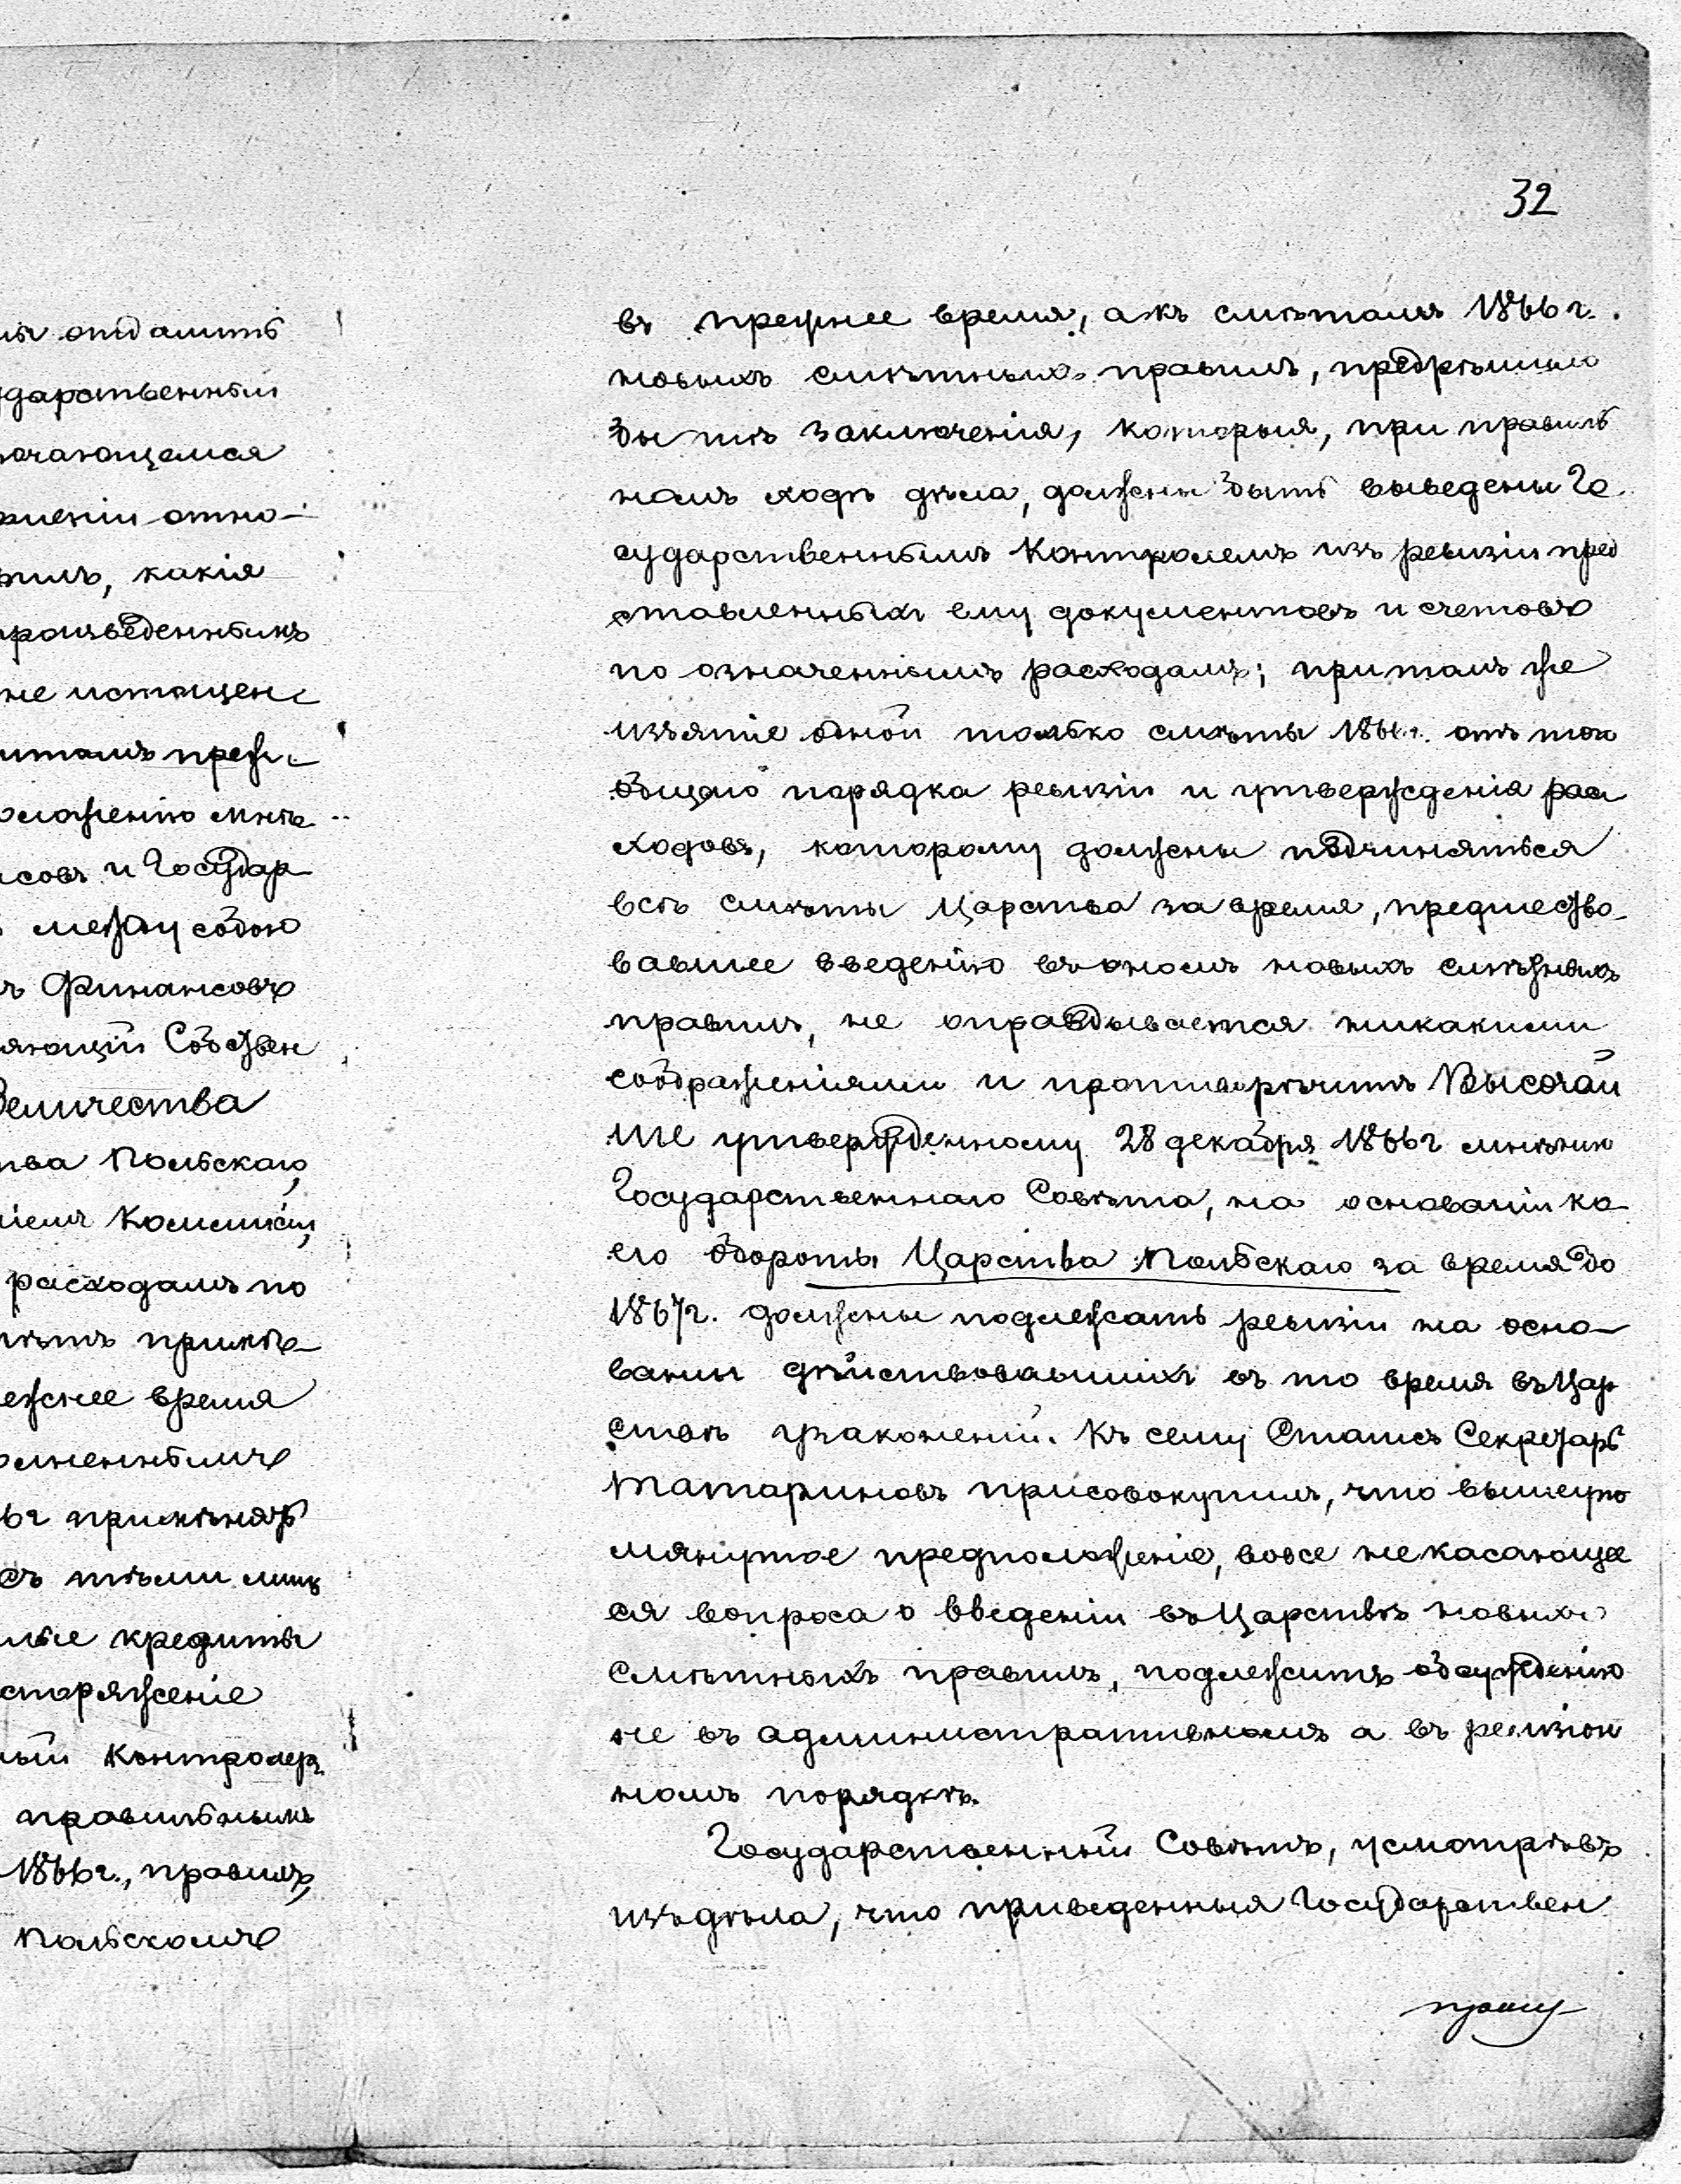 32
отдалить
ударственный
ючающемся
шеніи отно-
какія
произведенныхъ
не истощен
итомъ преж-
оложенію мнѣ-
нсовъ и Государ-
между собою
ъ Финансовъ
яющій Собствен
Величества
тва Польскаго,
ніемъ Коммисіи,
расходамъ по
нѣтъ примѣ-
ежнее время
олненнымъ
6 г примѣнять
съ тѣми лишь
лые кредиты
споряженіе
ный Контролеръ
правильнымъ
1866 г., правилъ,
Польскомъ
въ прежнее время, а къ смѣтамъ 1866 г.
новыхъ смѣтныхъ правилъ, предрѣшило
бы тѣ заключенія, которыя, при правиль
номъ ходѣ дѣла, должны быть выведены Го-
сударственнымъ Контролемъ изъ ревизіи пред
ставленныхъ ему документовъ и счетовъ
по означеннымъ расходамъ; притомъ же
изъятіе одной только смѣты 1866 г. отъ того
общаго порядка ревизіи и утвержденія рас
ходовъ, которому должны подчиняться
всѣ смѣты Царства за время, предшество-
вавшее введенію въ ономъ новыхъ смѣтныхъ
правилъ, не оправдывается никакими
соображеніями и противорѣчитъ Высочай
ше утвержденному 28 декабря 1866 г мнѣнію
Государственнаго Совѣта, на основаніи ко-
его обороты Царства Польскаго за время до
1867 г. должны подлежать ревизіи на осно-
ваніи дѣйствовавшихъ въ то время въ Цар
ствѣ узаконеній. Къ сему Статсъ Секретарь
Татариновъ присовокупилъ, что вышеупо
мянутое предположеніе, вовсе не касающее
ся вопроса о введеніи въ Царствѣ новыхъ
смѣтныхъ правилъ, подлежитъ обсужденію
не въ административномъ а въ ревизіон
номъ порядкѣ.
Государственный Совѣтъ, усмотрѣвъ
изъ дѣла, что приведенныя Государствен